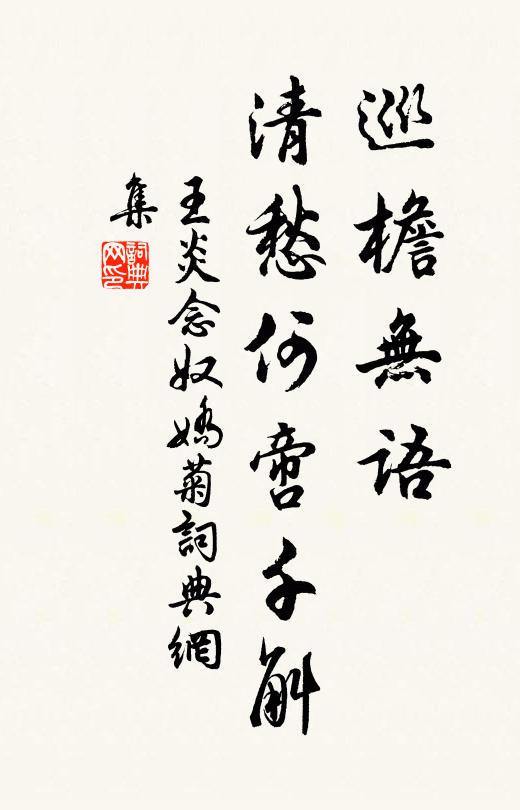 巡檐無語
清愁何啻千斛
王炎念奴嬌菊詞典網
集
詞典網印